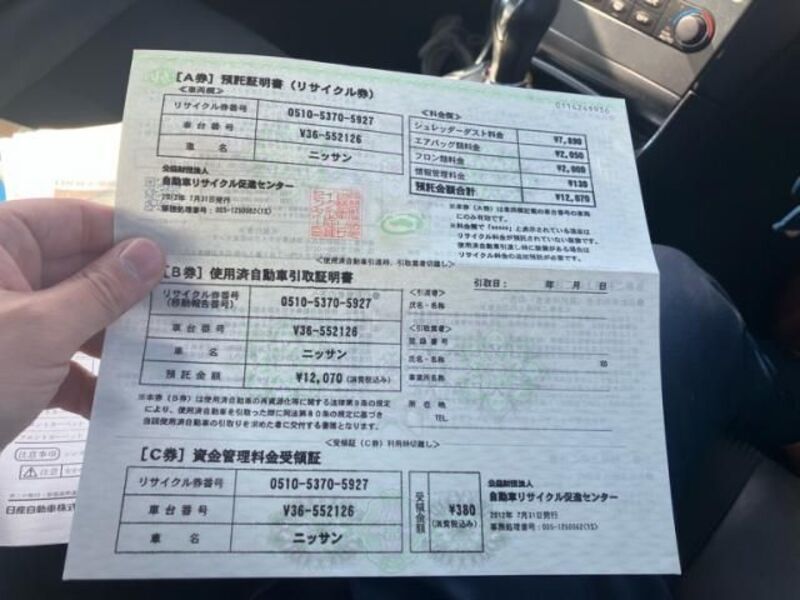 0114249956
[A券] 預託証明書(リサイクル券)
<車両欄>
リサイクル券番号 0510-5370-5927
車台番号 V36-552126
車名 ニッサン
<料金欄>
シュレッダーダスト料金 ¥7,890
エアバッグ類料金 ¥2,050
フロン類料金 ¥2,000
情報管理料金 ¥130
預託金額合計 ¥12,070
公益財団法人
自動車リサイクル促進センター
2012年 7月31日発行
※本券(A券)は車両欄記載の車台番号の車両
にのみ有効です。
リサイクル料金が預託されていない装備です。
使用済自動車引渡し時に装備がある場合は
リサイクル料金の追加預託が必要です。
<使用済自動車引渡時、引取業者切離し>
[B券] 使用済自動車引取証明書
リサイクル券番号
(移動報告番号) 0510-5370-5927
車台番号 V36-552126
車名 ニッサン
預託金額 ¥12,070(消費税込み)
引取日: 年 月 日
<引渡者>
氏名・名称
<引取業者>
登録番号
氏名・名称
事業所名称
所在地
TEL
※本券(B券)は使用済自動車の再資源化等に関する法律第9条の規定
により、使用済自動車を引取った際に同法第80条の規定に基づき
当該使用済自動車の引取りを求めた者に交付する書面となります。
<受領証(C券)利用時切離し>
[C券] 資金管理料金受領証
リサイクル券番号 0510-5370-5927
車台番号 V36-552126
車名 ニッサン
受領金額 ¥380
(消費税込み)
公益財団法人
自動車リサイクル促進センター
2012年 7月31日発行
注意事項
注意
日産自動車株式